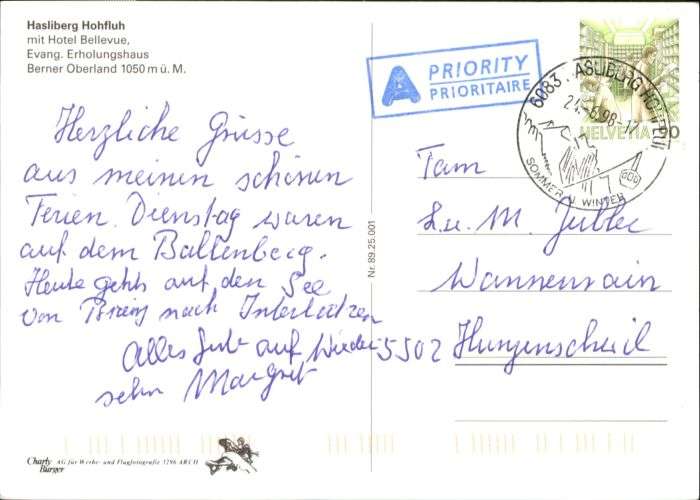 Hasliberg Hohfluh
mit Hotel Bellevue,
Evang. Erholungshaus
Berner Oberland 1050 m ü. M.
A PRIORITY
PRIORITAIRE
6083 HASLIBERG HOHFLUH
24.-6.98-17
SOMMER U. WINTER
HELVETIA 90
Herzliche Grüsse
aus meinen schönen
Ferien. Dienstag waren
auf dem Ballenberg.
Heute gehts auf den See
von Brienz nach Interlaken
Alles Gute auf Wieder
sehn Margrit
Nr. 89.25.001
Fam.
L. u. M.
Wannenrain
5502 Hunzenschwil
Charly Burger
AG für Werbe- und Flugfotografie 3296 ARCH